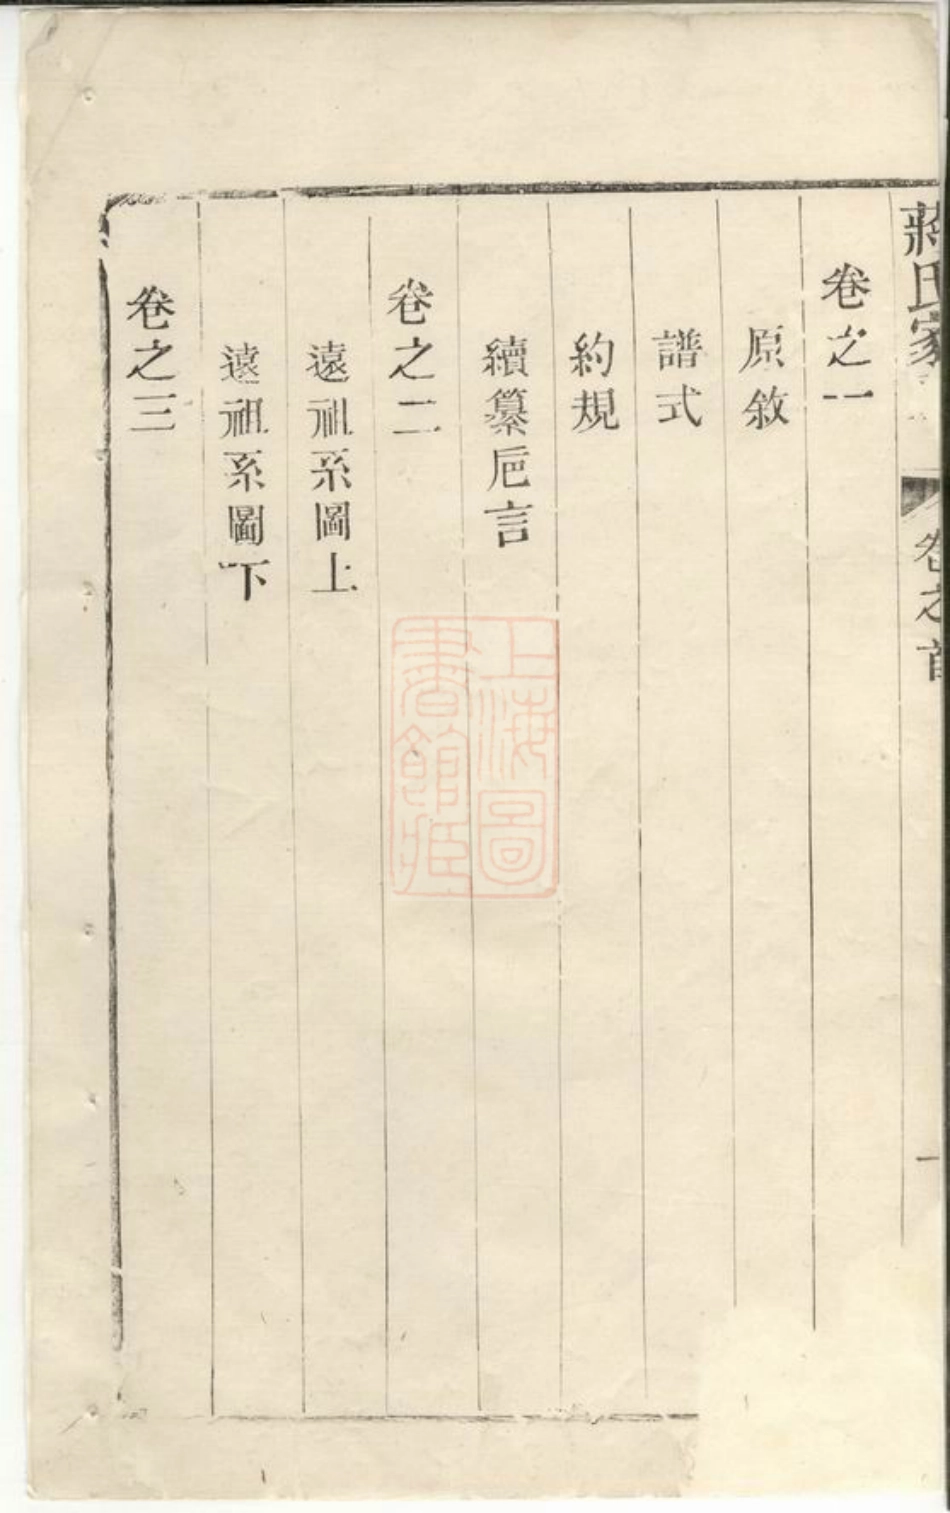 蔣氏家
卷之首
一
卷之一
原敘
譜式
約規
續纂巵言
卷之二
遠祖系圖上
遠祖系圖下
卷之三
上海圖
書館藏